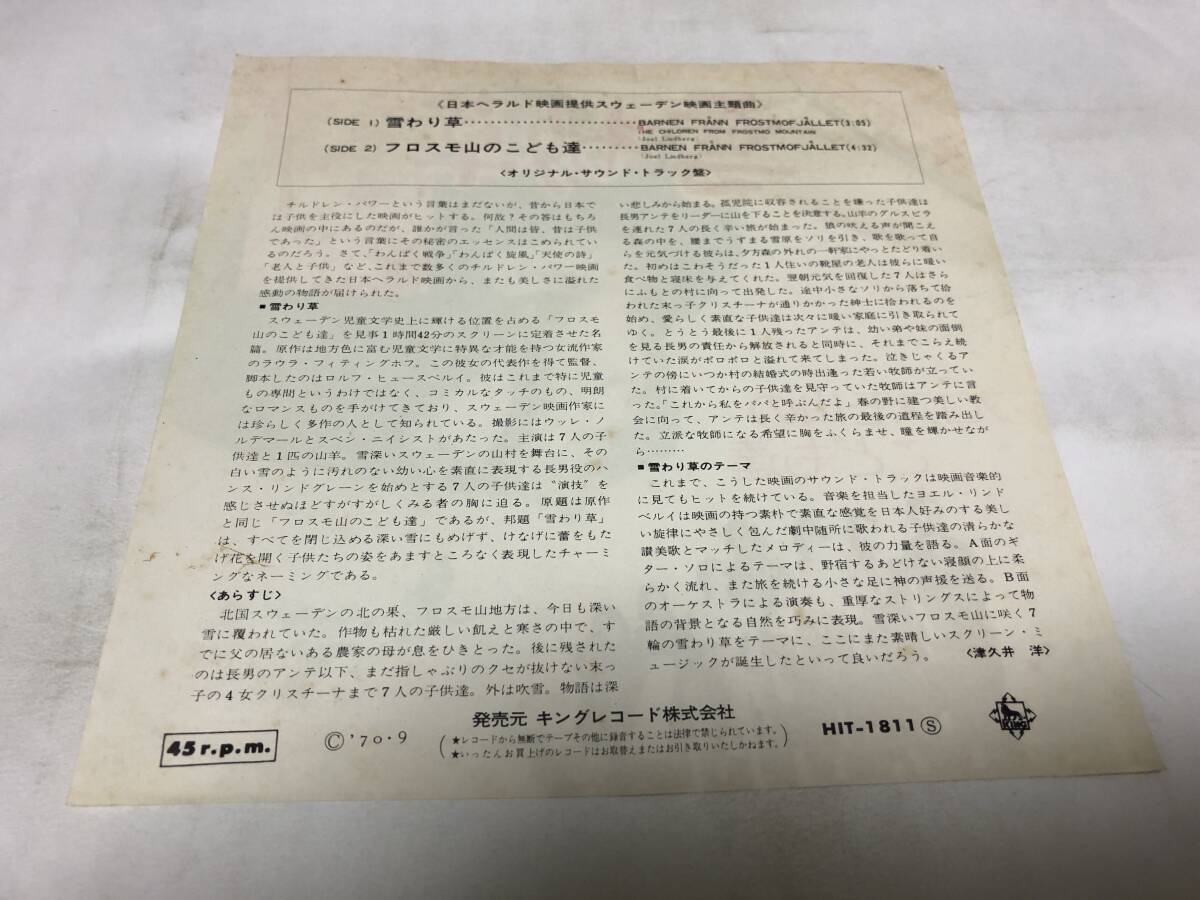 《日本ヘラルド映画提供スウェーデン映画主題曲》
(SIDE 1) 雪わり草…………………………BARNEN FRÅNN FROSTMOFJÅLLET(3:05)
THE CHILDREN FROM FROSTMO MOUNTAIN
(Joel Lindberg)
(SIDE 2) フロスモ山のこども達………BARNEN FRÅNN FROSTMOFJÅLLET(4:32)
(Joel Lindberg)
<オリジナル・サウンド・トラック盤>
チルドレン・パワーという言葉はまだないが、昔から日本で
は子供を主役にした映画がヒットする。何故?その答はもちろ
ん映画の中にあるのだが、誰かが言った「人間は皆、昔は子供
であった」という言葉にその秘密のエッセンスはこめられてい
るのだろう。さて、「わんぱく戦争」「わんぱく旋風」「天使の詩」
「老人と子供」など、これまで数多くのチルドレン・パワー映画
を提供してきた日本ヘラルド映画から、またも美しさに溢れた
感動の物語が届けられた。
■雪わり草
スウェーデン児童文学史上に輝ける位置を占める「フロスモ
山のこども達」を見事1時間42分のスクリーンに定着させた名
篇。原作は地方色に富む児童文学に特異な才能を持つ女流作家
のラウラ・フィティングホフ。この彼女の代表作を得て監督、
脚本したのはロルフ・ヒュースベルイ。彼はこれまで特に児童
もの専問というわけではなく、コミカルなタッチのもの、明朗
なロマンスものを手がけてきており、スウェーデン映画作家に
は珍らしく多作の人として知られている。撮影にはウッレ・ノ
ルデマールとスベン・ニイシストがあたった。主演は7人の子
供達と1匹の山羊。雪深いスウェーデンの山村を舞台に、その
白い雪のように汚れのない幼い心を素直に表現する長男役のハ
ンス・リンドグレーンを始めとする7人の子供達は“演技”を
感じさせぬほどすがすがしくみる者の胸に迫る。原題は原作
と同じ「フロスモ山のこども達」であるが、邦題「雪わり草」
は、すべてを閉じ込める深い雪にもめげず、けなげに蕾をもた
げ花を開く子供たちの姿をあますところなく表現したチャーミ
ングなネーミングである。
<あらすじ>
北国スウェーデンの北の果、フロスモ山地方は、今日も深い
雪に覆われていた。作物も枯れた厳しい飢えと寒さの中で、す
でに父の居ないある農家の母が息をひきとった。後に残された
のは長男のアンテ以下、まだ指しゃぶりのクセが抜けない末っ
子の4女クリスチーナまで7人の子供達。外は吹雪。物語は深
い悲しみから始まる。孤児院に収容されることを嫌った子供達は
長男アンテをリーダーに山を下ることを決意する。山羊のグルスピラ
を連れた7人の長く辛い旅が始まった。狼の吠える声が聞こえ
る森の中を、腰までうずまる雪原をソリを引き、歌を歌って自
らを元気づける彼らは、夕方森の外れの一軒家にやっとたどり着い
た。初めはこわそうだった1人住いの靴屋の老人は彼らに暖い
食べ物と寝床を与えてくれた。翌朝元気を回復した7人はさら
にふもとの村に向って出発した。途中小さなソリから落ちて拾
われた末っ子クリスチーナが通りかかった紳士に拾われるのを
始め、愛らしく素直な子供達は次々に暖い家庭に引き取られて
ゆく。とうとう最後に1人残ったアンテは、幼い弟や妹の面倒
を見る長男の責任から解放されると同時に、それまでこらえ続
けていた涙がボロボロと溢れて来てしまった。泣きじゃくるア
ンテの傍にいつか村の結婚式の時出逢った若い牧師が立ってい
た。村に着いてからの子供達を見守っていた牧師はアンテに言
った。「これから私をパパと呼ぶんだよ」春の野に建つ美しい教
会に向って、アンテは長く辛かった旅の最後の道程を踏み出し
た。立派な牧師になる希望に胸をふくらませ、瞳を輝かせなが
ら………
■雪わり草のテーマ
これまで、こうした映画のサウンド・トラックは映画音楽的
に見てもヒットを続けている。音楽を担当したヨエル・リンド
ベルイは映画の持つ素朴で素直な感覚を日本人好みのする美し
い旋律にやさしく包んだ劇中随所に歌われる子供達の清らかな
讃美歌とマッチしたメロディーは、彼の力量を語る。A面のギ
ター・ソロによるテーマは、野宿するあどけない寝顔の上に柔
らかく流れ、また旅を続ける小さな足に神の声援を送る。B面
のオーケストラによる演奏も、重厚なストリングスによって物
語の背景となる自然を巧みに表現。雪深いフロスモ山に咲く7
輪の雪わり草をテーマに、ここにまた素晴しいスクリーン・ミ
ュージックが誕生したといって良いだろう。 <津久井 洋>
45 r.p.m.
Ⓒ '70・9
発売元 キングレコード株式会社
(★レコードから無断でテープその他に録音することは法律で禁じられています。
★いったんお買上げのレコードはお取替えまたはお引き取りいたしかねます。)
HIT-1811 Ⓢ
King